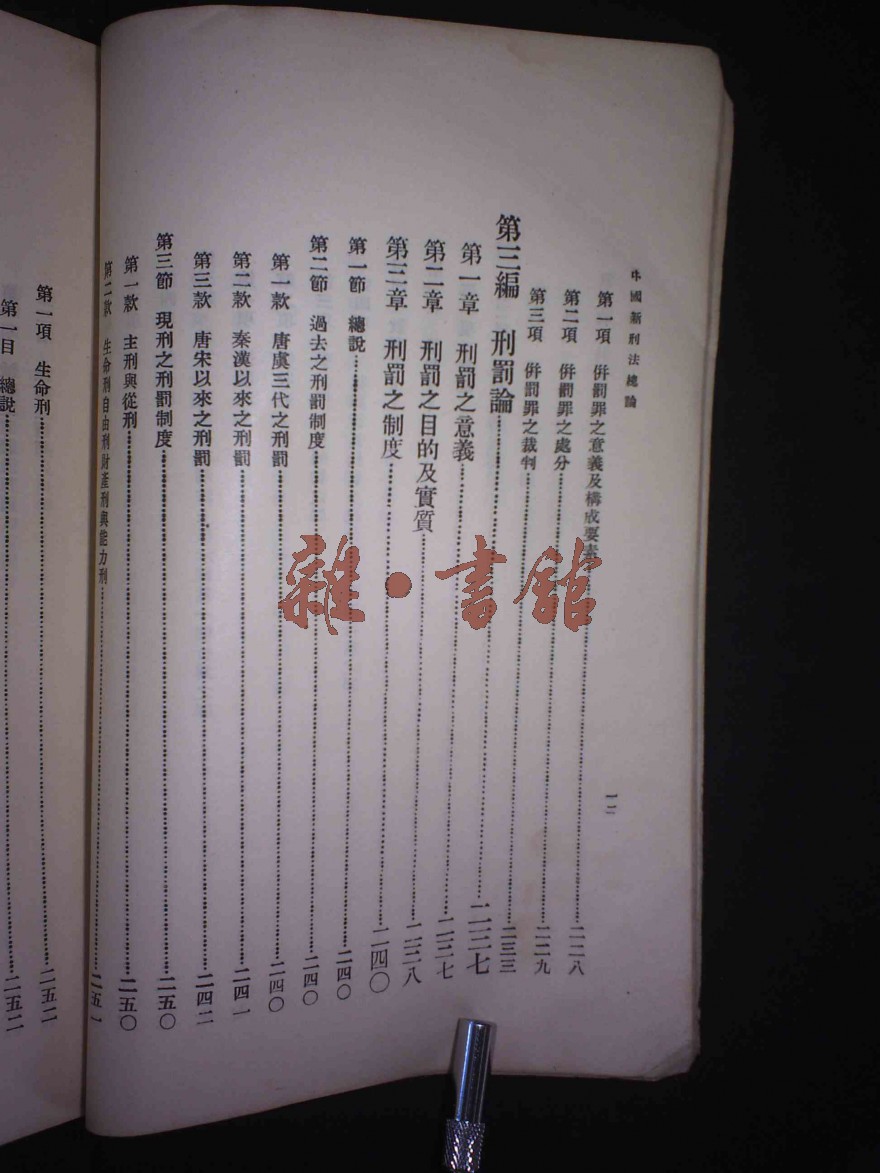 中國新刑法總論　一二
第一項　併罰罪之意義及構成要素……二二八
第二項　併罰罪之處分……二二九
第三項　併罰罪之裁判……二三三
第三編　刑罰論……二三七
第一章　刑罰之意義……二三七
第二章　刑罰之目的及實質……二三八
第三章　刑罰之制度……二四〇
第一節　總說……二四〇
第二節　過去之刑罰制度……二四〇
第一款　唐虞三代之刑罰……二四〇
第二款　秦漢以來之刑罰……二四一
第三款　唐宋以來之刑罰……二四二
第三節　現刑之刑罰制度……二五〇
第一款　主刑與從刑……二五〇
第二款　生命刑自由刑財產刑與能力刑……二五一
第一項　生命刑……二五二
第一目　總說……二五二
雜·書館